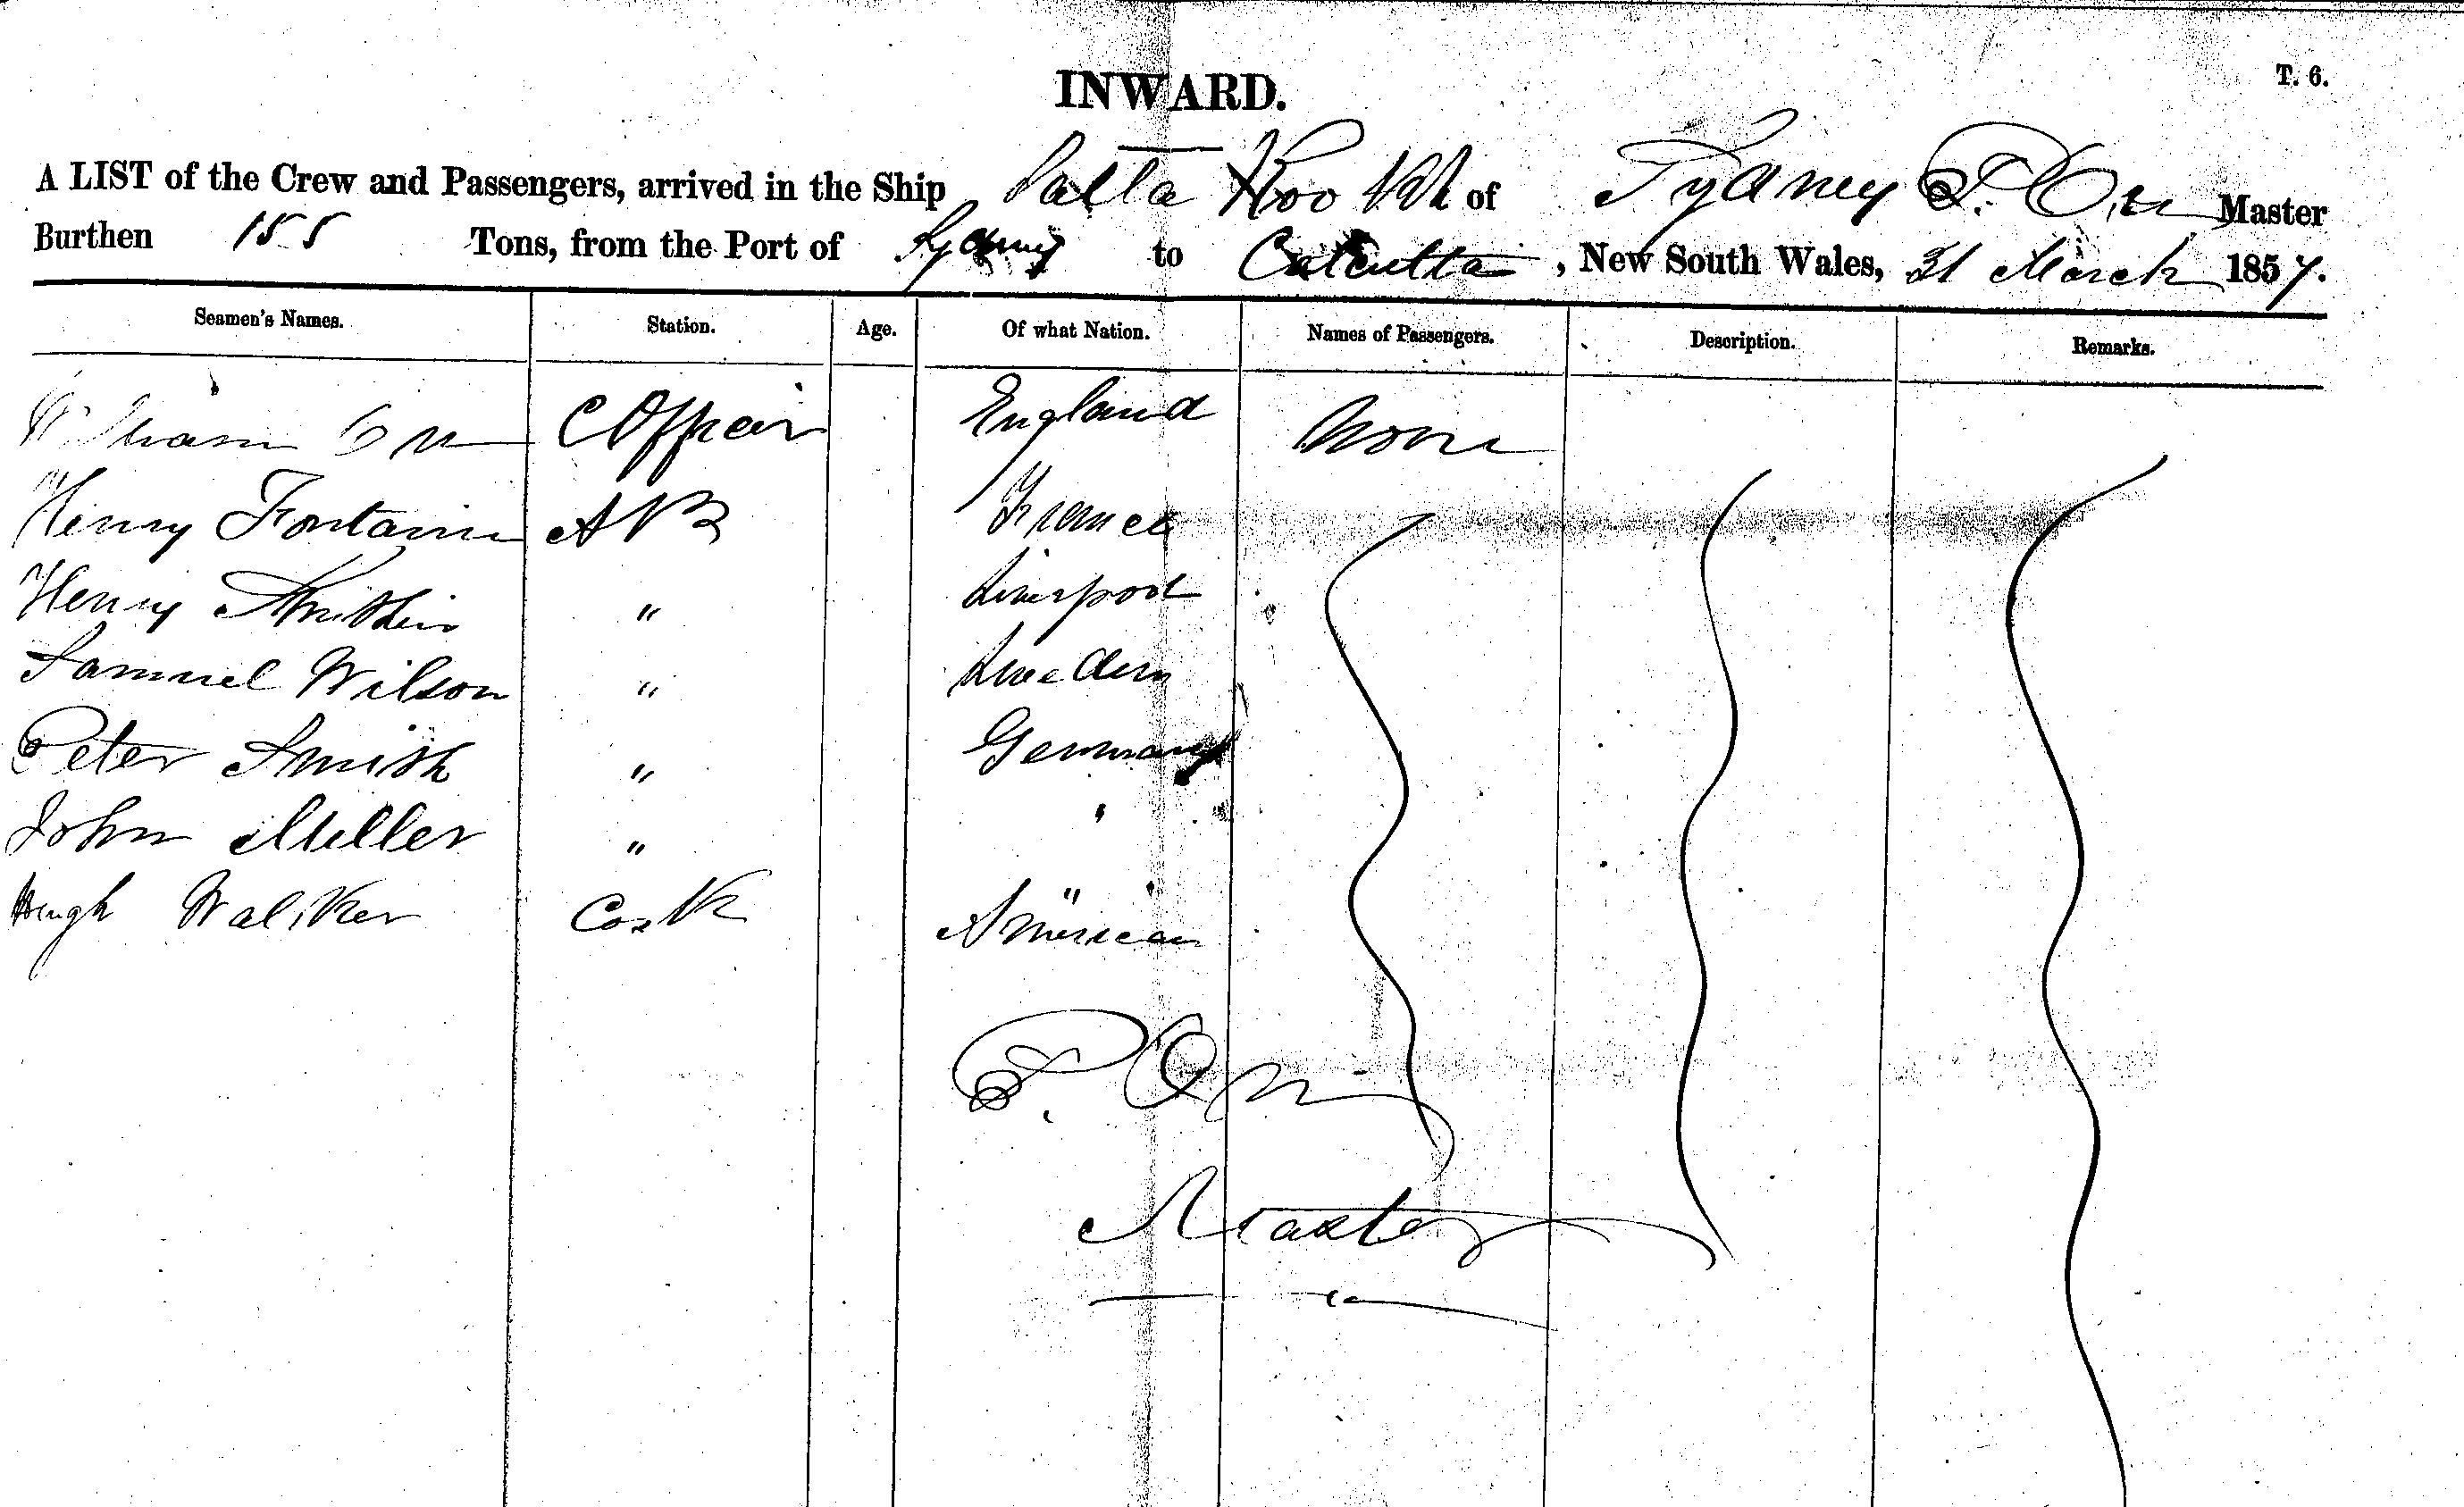 INWARD.
T. 6.
A LIST of the Crew and Passengers, arrived in the Ship Lalla Rookh of Sydney P. Orr Master
Burthen 155 Tons, from the Port of Sydney to Calcutta, New South Wales, 31 March 1857.
Seamen's Names. Station. Age. Of what Nation. Names of Passengers. Description. Remarks.
William Orr C Officer England None
Henry Fontaine AB France
Henry " Liverpool
Samuel Wilson " Sweden
Peter Smith " Germany
John Miller " "
Hugh Walker Cook American
P. Orr
Master